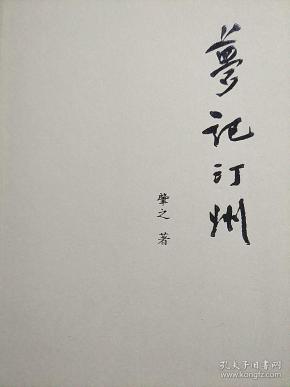 夢記汀州
肇之 著
孔夫子旧书网